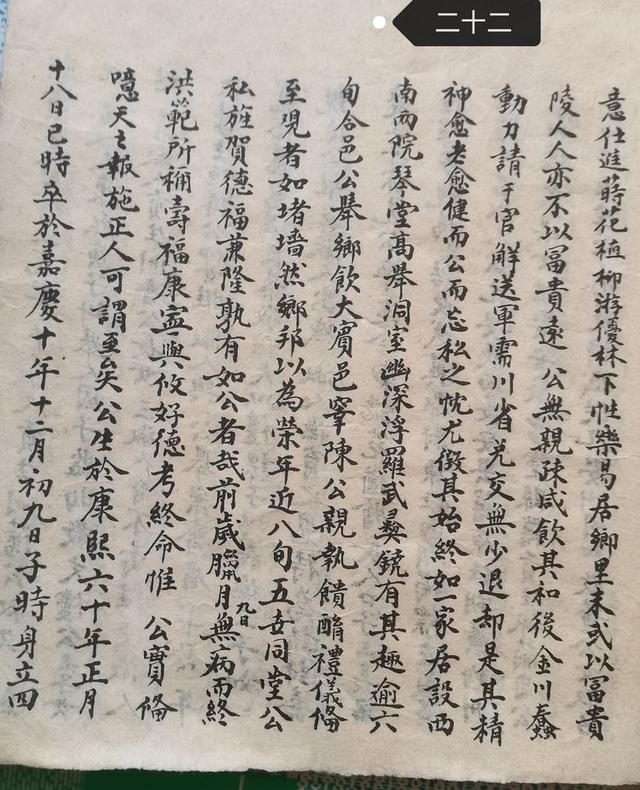 二十二
意仕進蒔花植柳游優林下性樂易居鄉里未或以冨貴
陵人人亦不以冨貴遠 公無親疎咸飲其和後金川蠢
動力請于官解送軍需川省兌交無少退却是其精
神愈老愈健而公而忘私之忱尤徴其始終如一家居設西
南两院琴堂高舉洞室幽深浮羅武彞饒有其趣逾六
旬合邑公舉鄉飲大賓邑宰陳公親執饋酳禮儀俻
至覌者如堵墙然鄉邦以為榮年近八旬五世同堂公
私旌賀德福兼隆孰有如公者哉前歲臘月九日無病而終
洪範所稱壽福康寧與攸好德考終命惟 公實俻
噫天之報施正人可謂至矣公生於康熙六十年正月
十八日巳時卒於嘉慶十年十二月初九日子時身立四